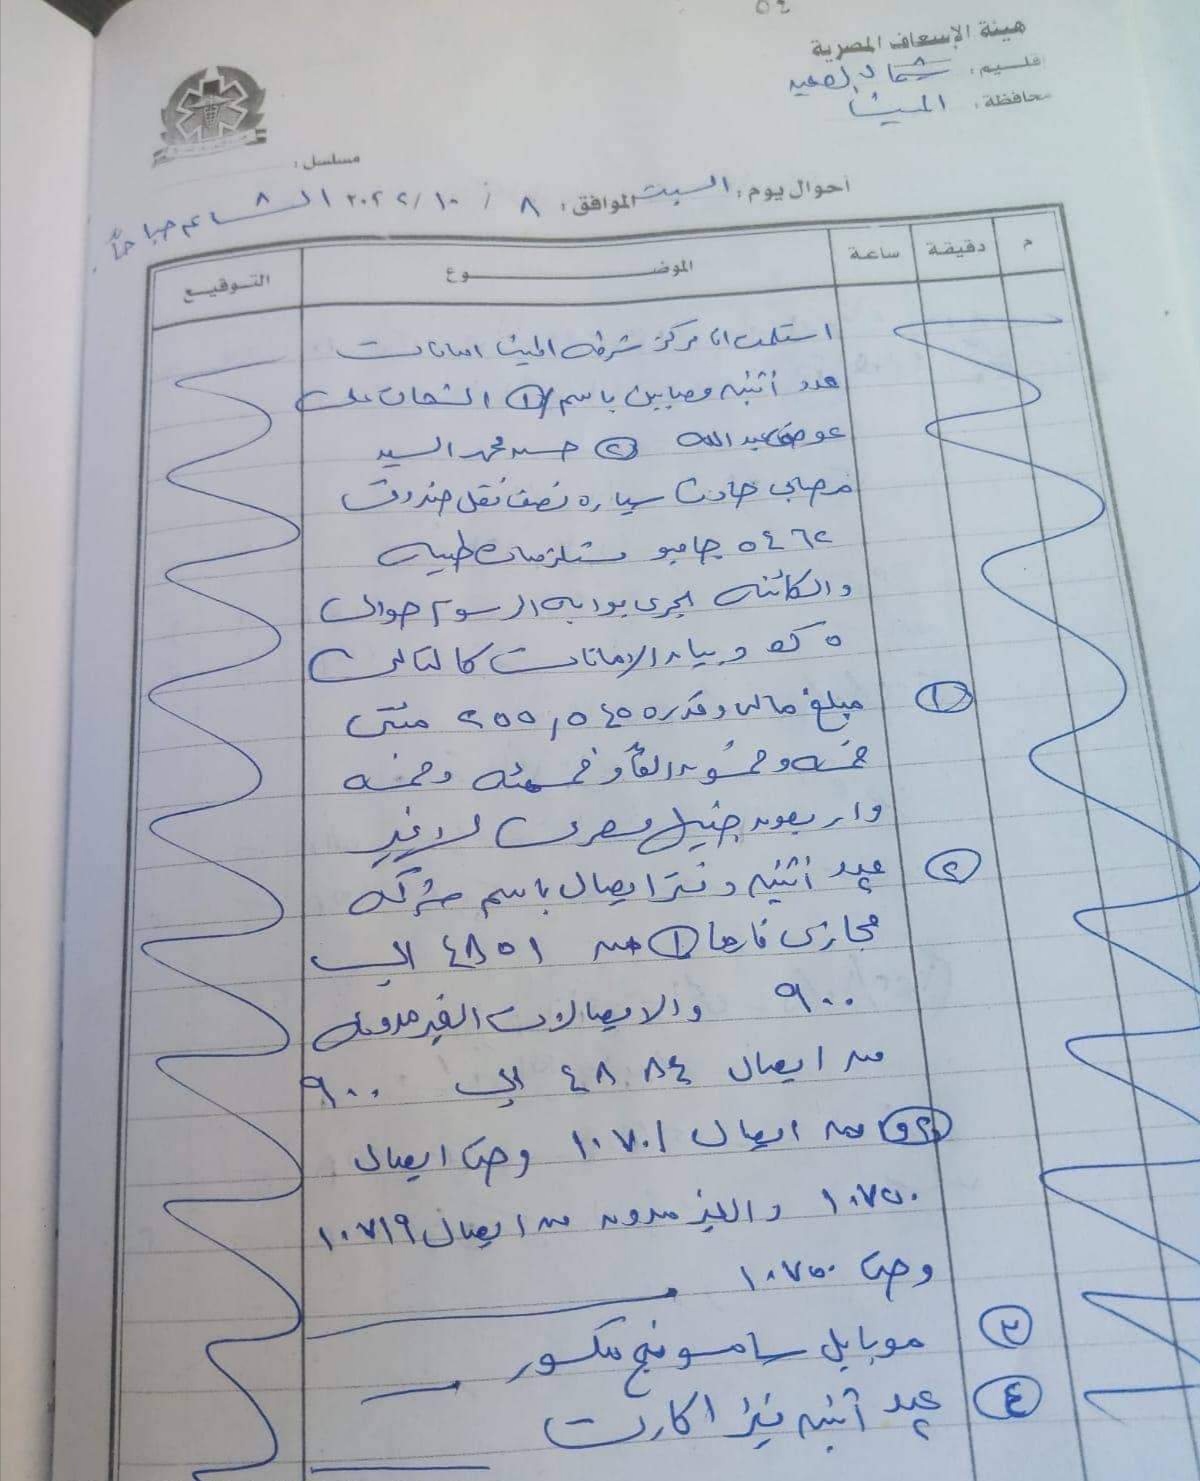 ٥٤
هيئة الإسعاف المصرية
إقليم: شمال الصعيد
محافظة: المنيا
مسلسل:
أحوال يوم: السبت الموافق: ٨ / ١٠ / ٢٠٢٢ الساعه ٨ صباحاً
م دقيقة ساعة الموضوع التوقيع
استلمت انا مركز شرطه المنيا امانات
عدد أثنين مصابين باسم / ١ الشحات على
عوض عبد الله ٢ حسن محمد السيد
مصابى حادث سياره نصف نقل صندوق
٥٤٦٢ جامبو مستلزمات طبيه
والكائنه بحرى بوابه الرسوم حوالى
٥ ك وبيان الامانات كالتالى
١ مبلغ مالى وقدره ٢٥٥,٥٤٥ مئتى
خمسه وخمسون الفاً وخمسمئه وخمسه
واربعون جنيه مصرى لا غير
٢ عدد أثنين دفتر ايصال باسم شركه
حجازى فارما ١ من ٤٨٥١ الى
٩٠٠ والايصالات الغير مدونه
من ايصال ٤٨٨٤ الى ٩٠٠
٢ من ايصال ١٠٧٠١ وحتى ايصال
١٠٧٥٠ والغير مدونه من ايصال ١٠٧١٩
وحتى ١٠٧٥٠
٣ موبايل سامسونج مكسور
٤ عدد أثنين فيزا كارت